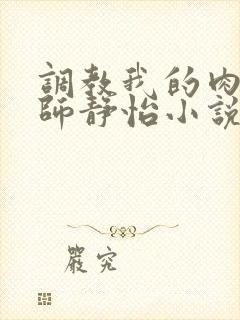 調教我的肉
師靜怡小說
嚴究